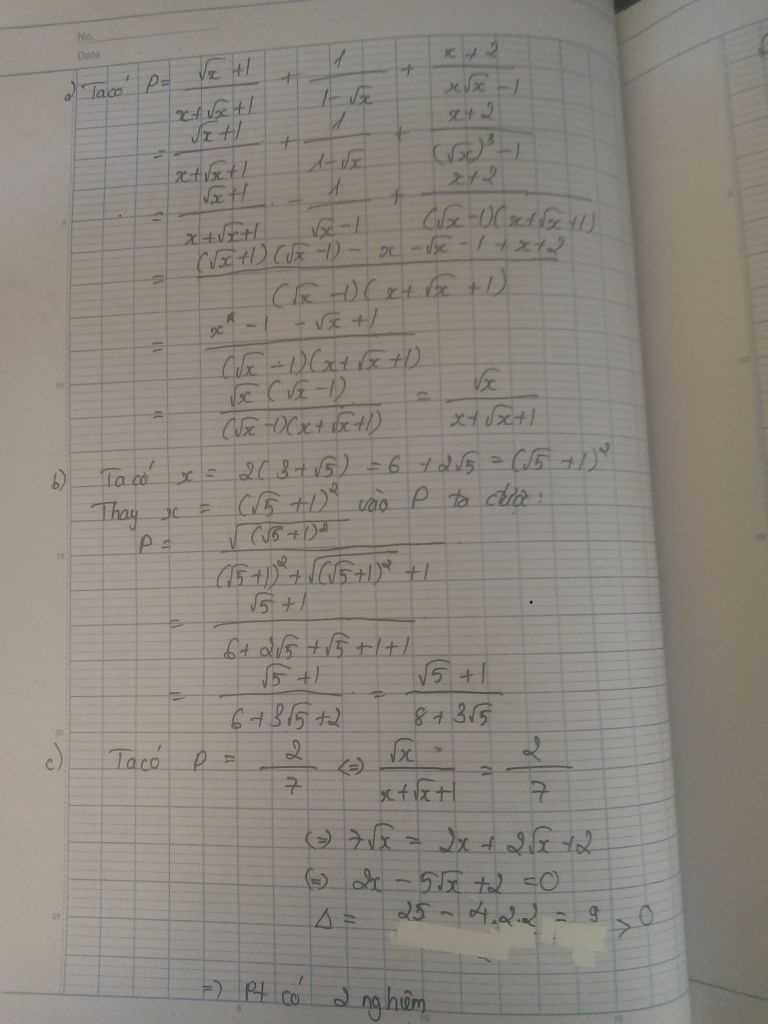 No.
Date
a) Ta có P = (√x + 1)/(x + √x + 1) + 1/(1 - √x) + (x + 2)/(x√x - 1)
= (√x + 1)/(x + √x + 1) + 1/(1 - √x) + (x + 2)/((√x)³ - 1)
= (√x + 1)/(x + √x + 1) - 1/(√x - 1) + (x + 2)/((√x - 1)(x + √x + 1))
= ((√x + 1)(√x - 1) - x - √x - 1 + x + 2)/((√x - 1)(x + √x + 1))
= (x - 1 - √x + 1)/((√x - 1)(x + √x + 1))
= (√x (√x - 1))/((√x - 1)(x + √x + 1)) = √x/(x + √x + 1)
b) Ta có x = 2(3 + √5) = 6 + 2√5 = (√5 + 1)²
Thay x = (√5 + 1)² vào P ta được:
P = √((√5 + 1)²)/((√5 + 1)² + √((√5 + 1)²) + 1)
= (√5 + 1)/(6 + 2√5 + √5 + 1 + 1)
= (√5 + 1)/(6 + 3√5 + 2) = (√5 + 1)/(8 + 3√5)
c) Ta có P = 2/7 <=> √x/(x + √x + 1) = 2/7
(=) 7√x = 2x + 2√x + 2
(=) 2x - 5√x + 2 = 0
Δ = 25 - 4.2.2 = 9 > 0
=) Pt có 2 nghiệm